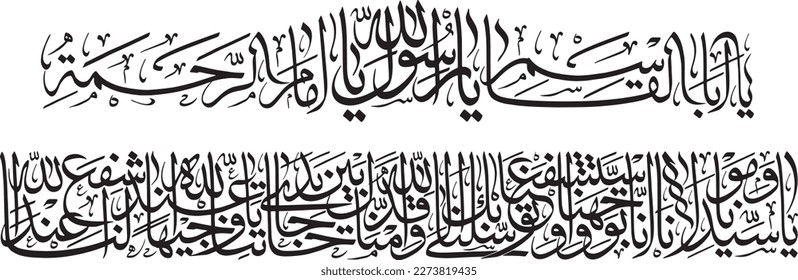 يا أبا القاسم يا رسول الله يا إمام الرحمة
يا سيدنا ومولانا إنا توجهنا واستشفعنا وتوسلنا بك إلى الله وقدمناك بين يدي حاجاتنا يا وجيها عند الله اشفع لنا عند الله
shutterstock.com · 2273819435